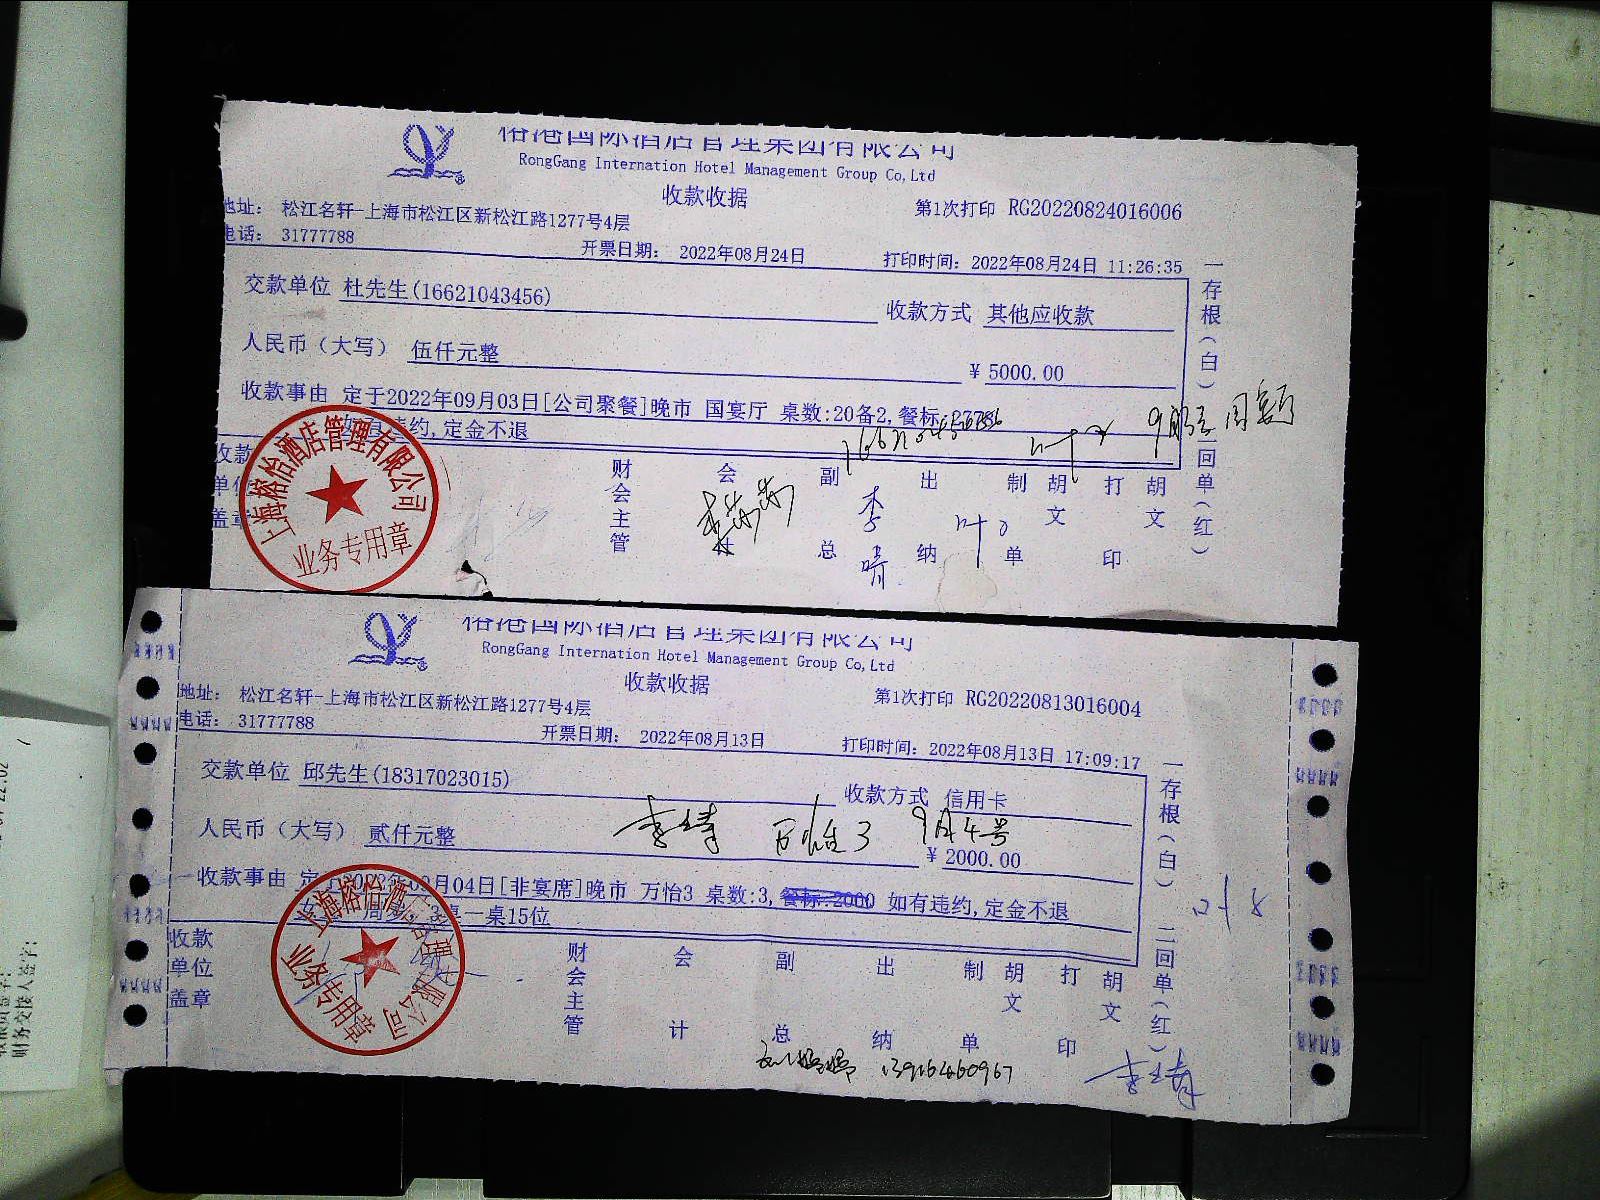 榕港国际酒店管理集团有限公司
RongGang Internation Hotel Management Group Co,Ltd
收款收据
地址： 松江名轩-上海市松江区新松江路1277号4层 第1次打印 RG20220824016006
电话： 31777788 开票日期： 2022年08月24日 打印时间：2022年08月24日 11:26:35
交款单位 杜先生(16621043456) 收款方式 其他应收款
人民币（大写） 伍仟元整 ￥5000.00
收款事由 定于2022年09月03日[公司聚餐]晚市 国宴厅 桌数:20备2,餐标:
如有违约,定金不退
9月3号
收款单位盖章 财会主管 会计 副总 李晴 出纳 制单 胡文 打印 胡文
一存根（白） 二回单（红）
上海榕怡酒店管理有限公司
业务专用章
榕港国际酒店管理集团有限公司
RongGang Internation Hotel Management Group Co,Ltd
收款收据
地址： 松江名轩-上海市松江区新松江路1277号4层 第1次打印 RG20220813016004
电话： 31777788 开票日期： 2022年08月13日 打印时间：2022年08月13日 17:09:17
交款单位 邱先生(18317023015) 收款方式 信用卡
李倩 万怡3 9月4号
人民币（大写） 贰仟元整 ￥2000.00
收款事由 定于2022年09月04日[非宴席]晚市 万怡3 桌数:3,餐标:2000 如有违约,定金不退
桌一桌15位
收款单位盖章 财会主管 会计 副总 出纳 制单 胡文 打印 胡文
一存根（白） 二回单（红）
上海榕怡酒店管理有限公司
业务专用章
13916460967
财务交接人签字：